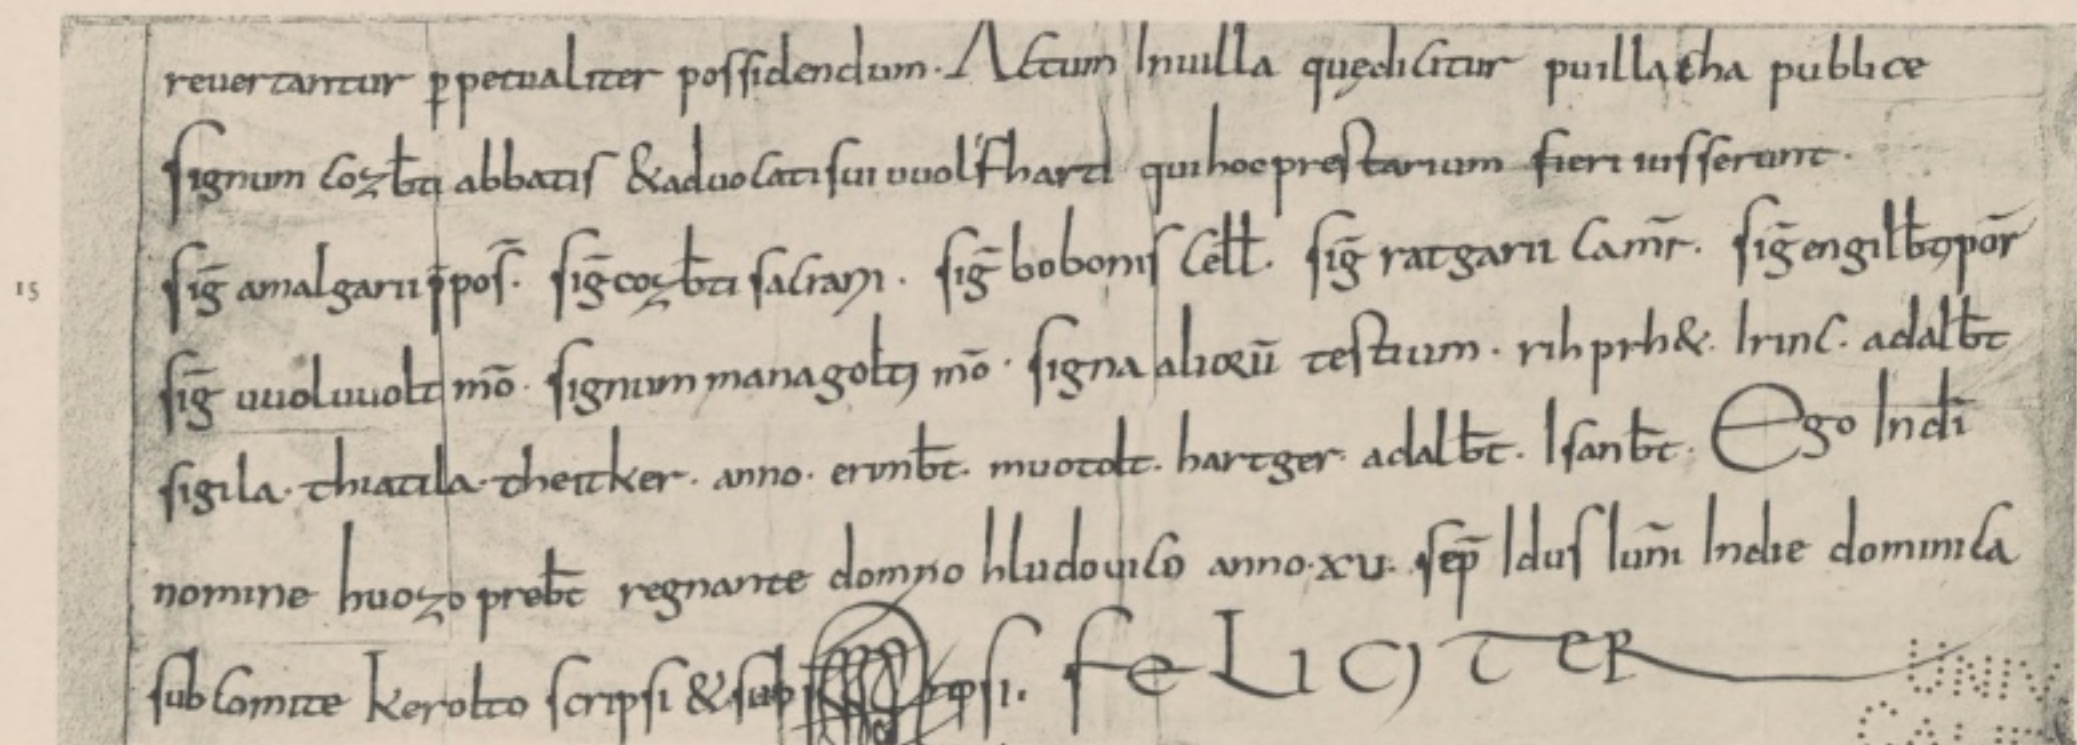 reuertantur p̱petualiter possidendum. Actum Inuilla quędicitur puillacha publice
signum cozb̄ti abbatis &aduocatisui uuolfhardi quihocprestarium fieri iusserunt.
15
sig̅ amalgarii p̄pos̄. sig̅ cozb̄ti sacratarii. sig̅ bobonis cell̄. sig̅ ratgarii cam̄r. sig̅ engilb̄ti por̄
sig̅ uuoluuolti mō. signum managolti mō. signa aliorū testium. rihprh&. Irinc. adalb̄t
sigila. thiatila. theitker. anno. erinb̄t. muotolt. hartger. adalb̄t. Isanb̄t. Ego Indī
nomine huozo preb̄t regnante domno hludouico anno.xv. sep̄ Idus Iun̄i Indie dominica
subcomite kerolto scripsi &subscripsi. FELICITER
UNIV
CALIF